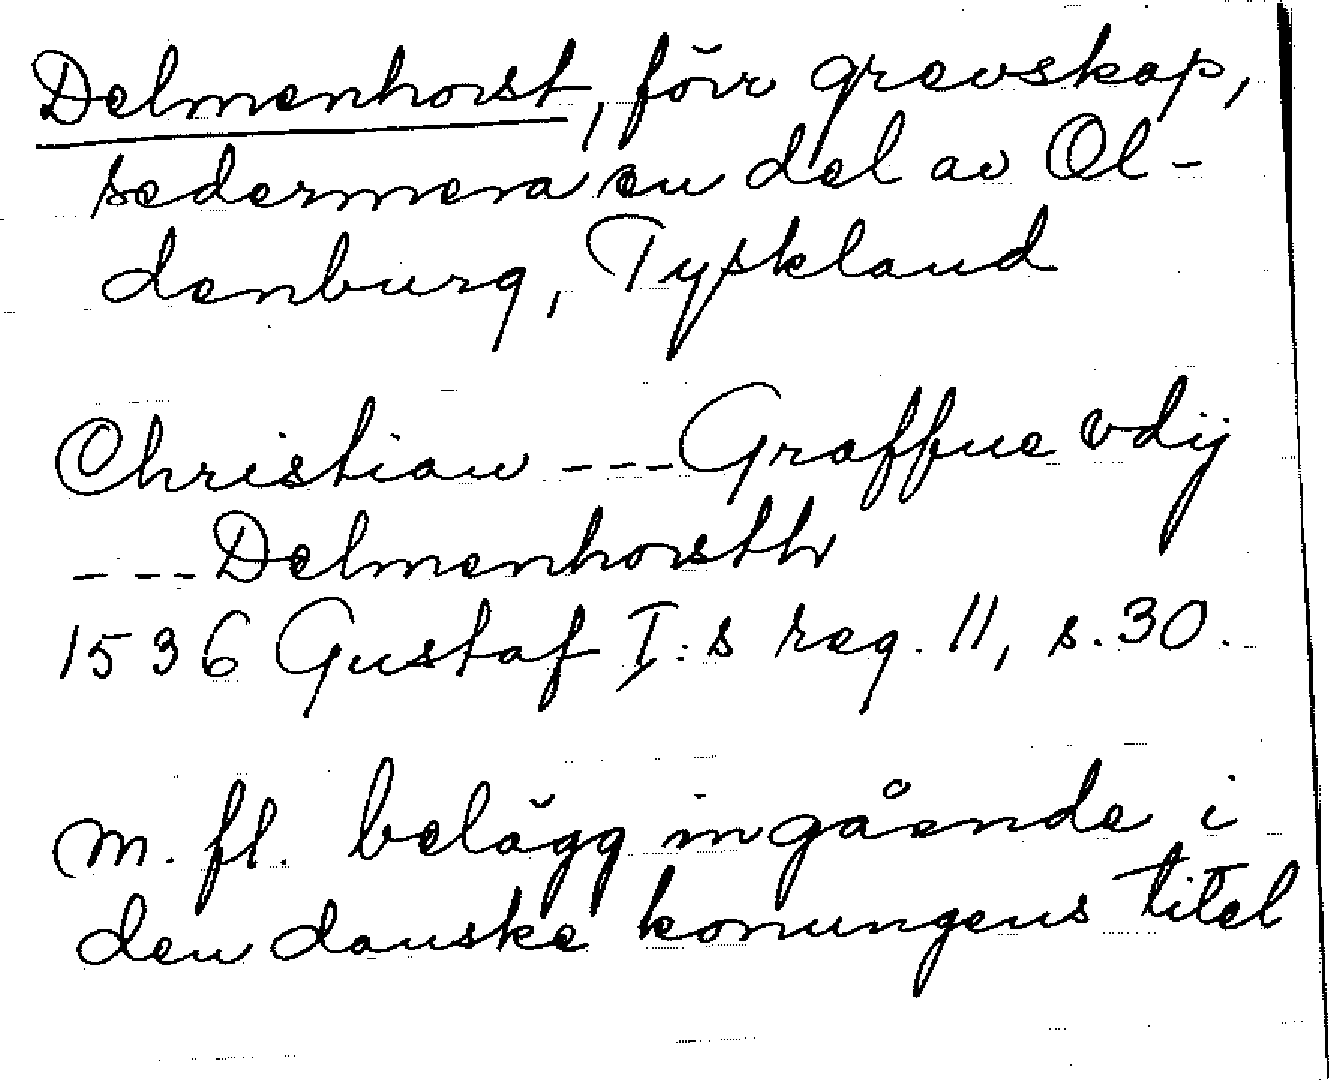 Delmenhorst, förr grevskap,
sedermera en del av Ol-
denburg, Tyskland
Christian --- Graffue vdij
--- Delmenhorsth
1536 Gustaf I:s reg. 11, s. 30.
M. fl. belägg ingående i
den danske konungens titel